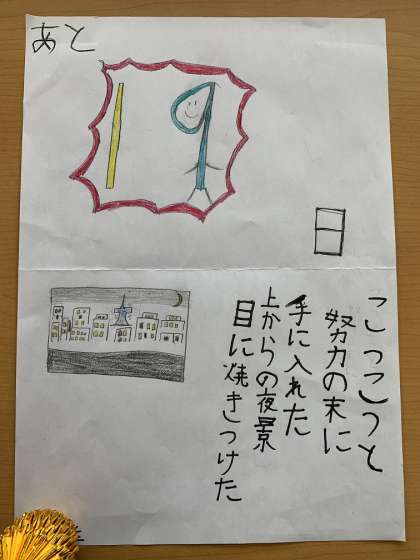 あと
19
日
こつこつと
努力の末に
手に入れた
上からの夜景
目に焼きつけた